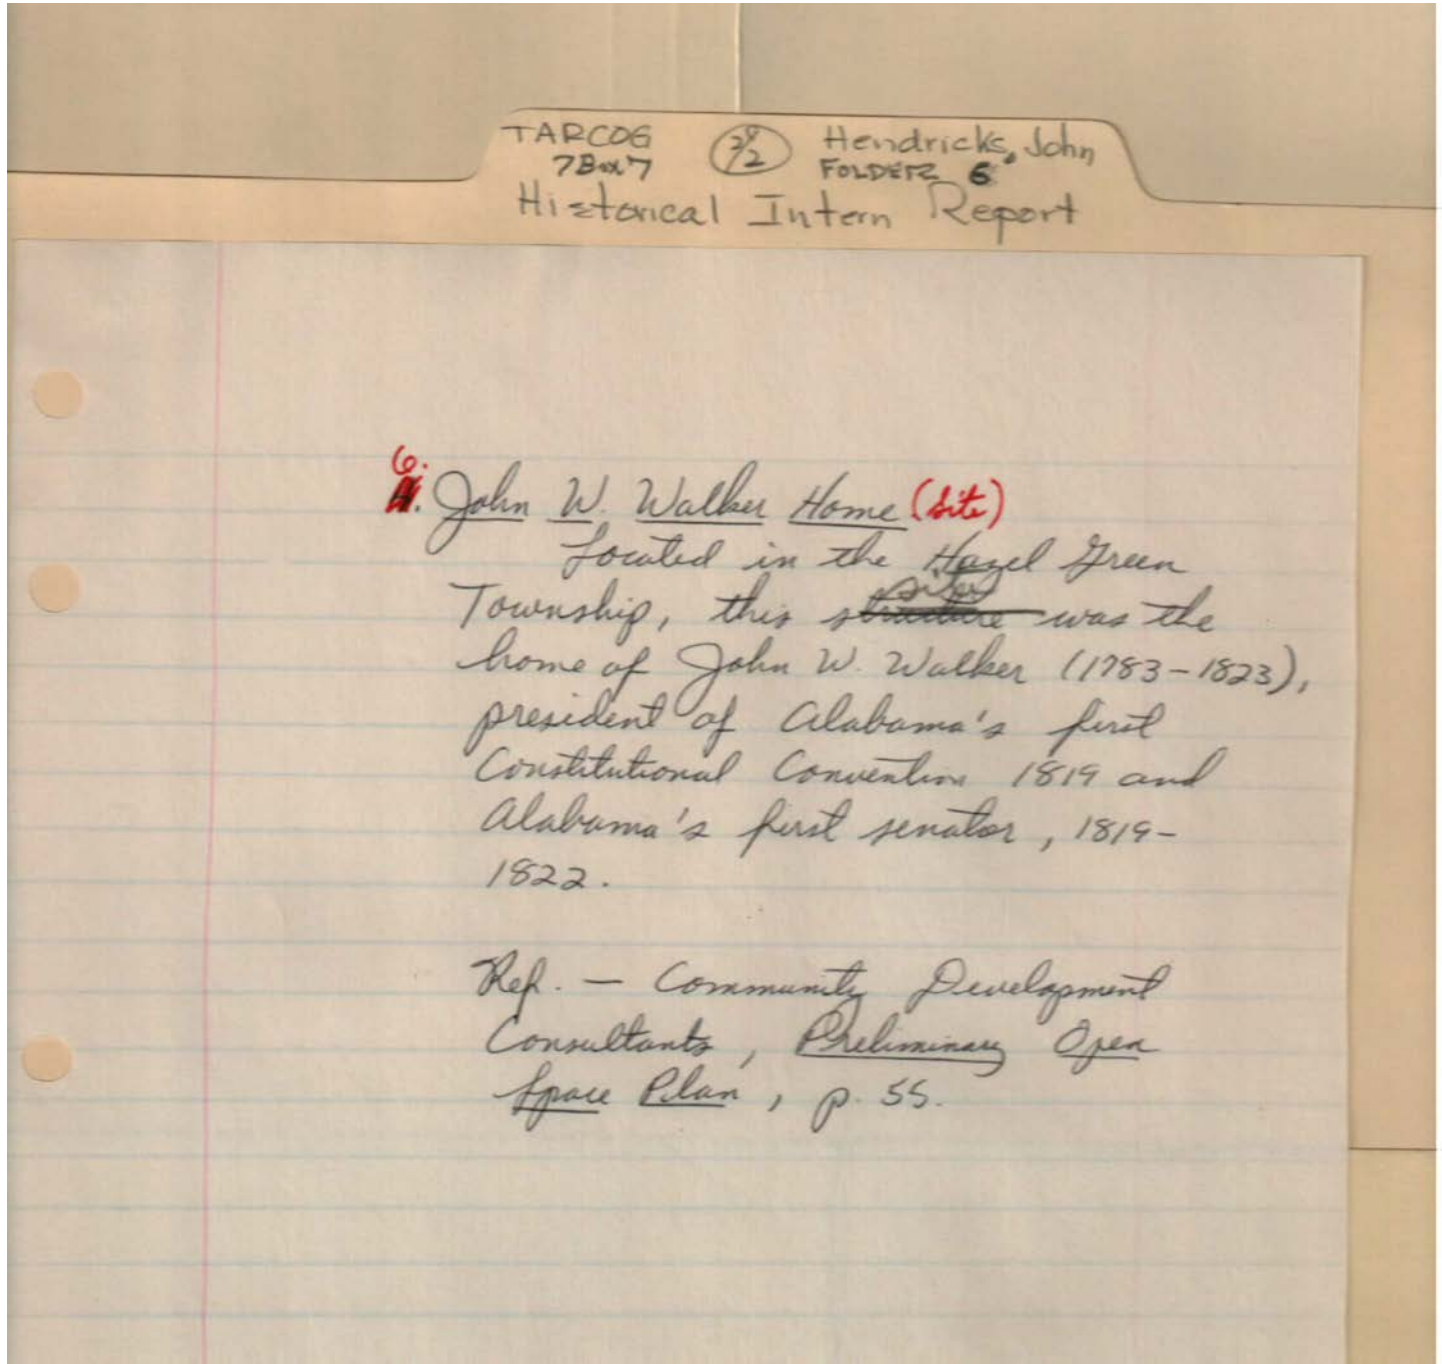 TARCOG 2/2 Hendricks, John
7 Box 7 FOLDER 6
Historical Intern Report
6.
John W. Walker Home (site)
Located in the Hazel Green
site
Township, this structure was the
home of John W. Walker (1783-1823),
president of Alabama's first
Constitutional Convention 1819 and
Alabama's first senator, 1819-
1822.
Ref. — Community Development
Consultants, Preliminary Open
Space Plan, p. 55.